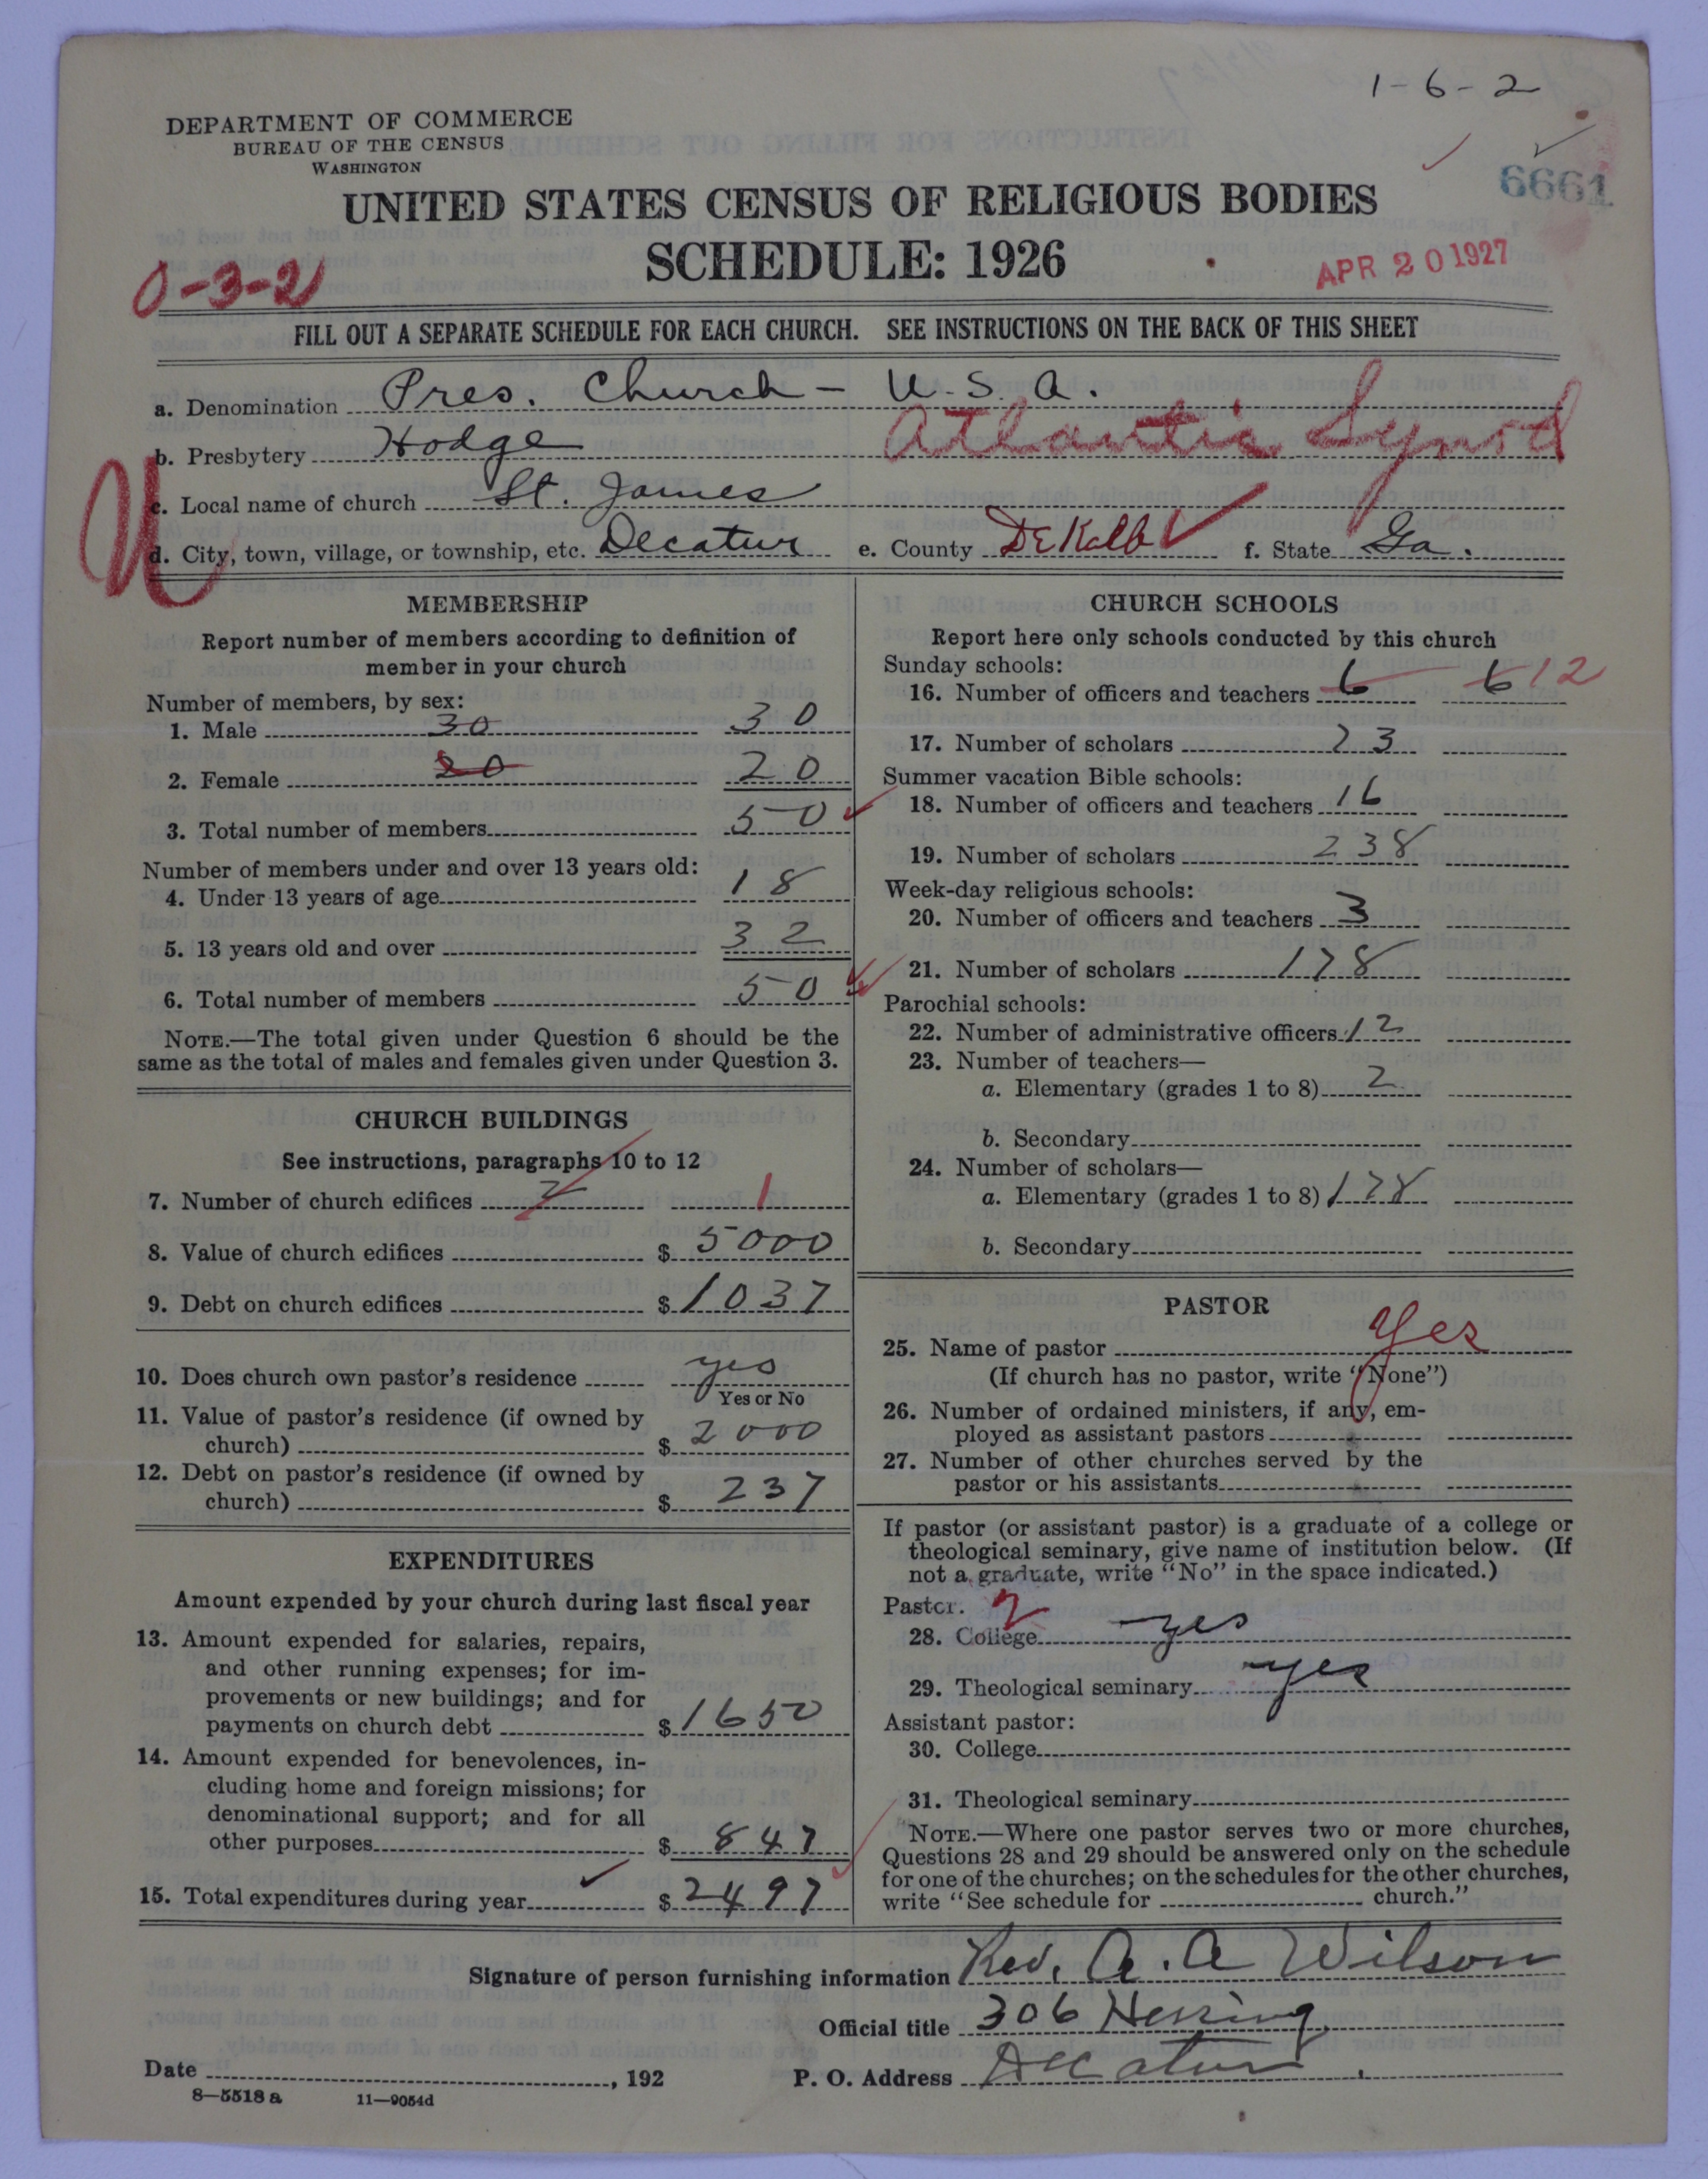 1-6-2
DEPARTMENT OF COMMERCE
BUREAU OF THE CENSUS
WASHINGTON
6661
UNITED STATES CENSUS OF RELIGIOUS BODIES
SCHEDULE: 1926
APR 20 1927
0-3-2
FILL OUT A SEPARATE SCHEDULE FOR EACH CHURCH. SEE INSTRUCTIONS ON THE BACK OF THIS SHEET
a. Denomination Pres. Church - U.S.A.
b. Presbytery Hodge Atlantic Synod
c. Local name of church St. James
d. City, town, village, or township, etc. Decatur e. County DeKalb f. State Ga.
MEMBERSHIP
Report number of members according to definition of
member in your church
Number of members, by sex:
1. Male 30 30
2. Female 20 20
3. Total number of members 50
Number of members under and over 13 years old:
4. Under 13 years of age 18
5. 13 years old and over 32
6. Total number of members 50
NOTE.—The total given under Question 6 should be the
same as the total of males and females given under Question 3.
CHURCH BUILDINGS
See instructions, paragraphs 10 to 12
7. Number of church edifices 2 1
8. Value of church edifices $ 5000
9. Debt on church edifices $ 1037
10. Does church own pastor's residence yes
Yes or No
11. Value of pastor's residence (if owned by
church) $ 2000
12. Debt on pastor's residence (if owned by
church) $ 237
EXPENDITURES
Amount expended by your church during last fiscal year
13. Amount expended for salaries, repairs,
and other running expenses; for im-
provements or new buildings; and for
payments on church debt $ 1650
14. Amount expended for benevolences, in-
cluding home and foreign missions; for
denominational support; and for all
other purposes $ 847
15. Total expenditures during year $ 2497
CHURCH SCHOOLS
Report here only schools conducted by this church
Sunday schools:
16. Number of officers and teachers 6 6 12
17. Number of scholars 73
Summer vacation Bible schools:
18. Number of officers and teachers 16
19. Number of scholars 238
Week-day religious schools:
20. Number of officers and teachers 3
21. Number of scholars 178
Parochial schools:
22. Number of administrative officers 12
23. Number of teachers—
a. Elementary (grades 1 to 8) 2
b. Secondary
24. Number of scholars—
a. Elementary (grades 1 to 8) 178
b. Secondary
PASTOR
25. Name of pastor Yes
(If church has no pastor, write "None")
26. Number of ordained ministers, if any, em-
ployed as assistant pastors
27. Number of other churches served by the
pastor or his assistants
If pastor (or assistant pastor) is a graduate of a college or
theological seminary, give name of institution below. (If
not a graduate, write "No" in the space indicated.)
Pastor. 2
28. College yes
29. Theological seminary yes
Assistant pastor:
30. College
31. Theological seminary
NOTE.—Where one pastor serves two or more churches,
Questions 28 and 29 should be answered only on the schedule
for one of the churches; on the schedules for the other churches,
write "See schedule for church."
Signature of person furnishing information Rev. A. A Wilson
Official title 306 Herring
Date , 192 P. O. Address Decatur
8—5518 a 11—9054d